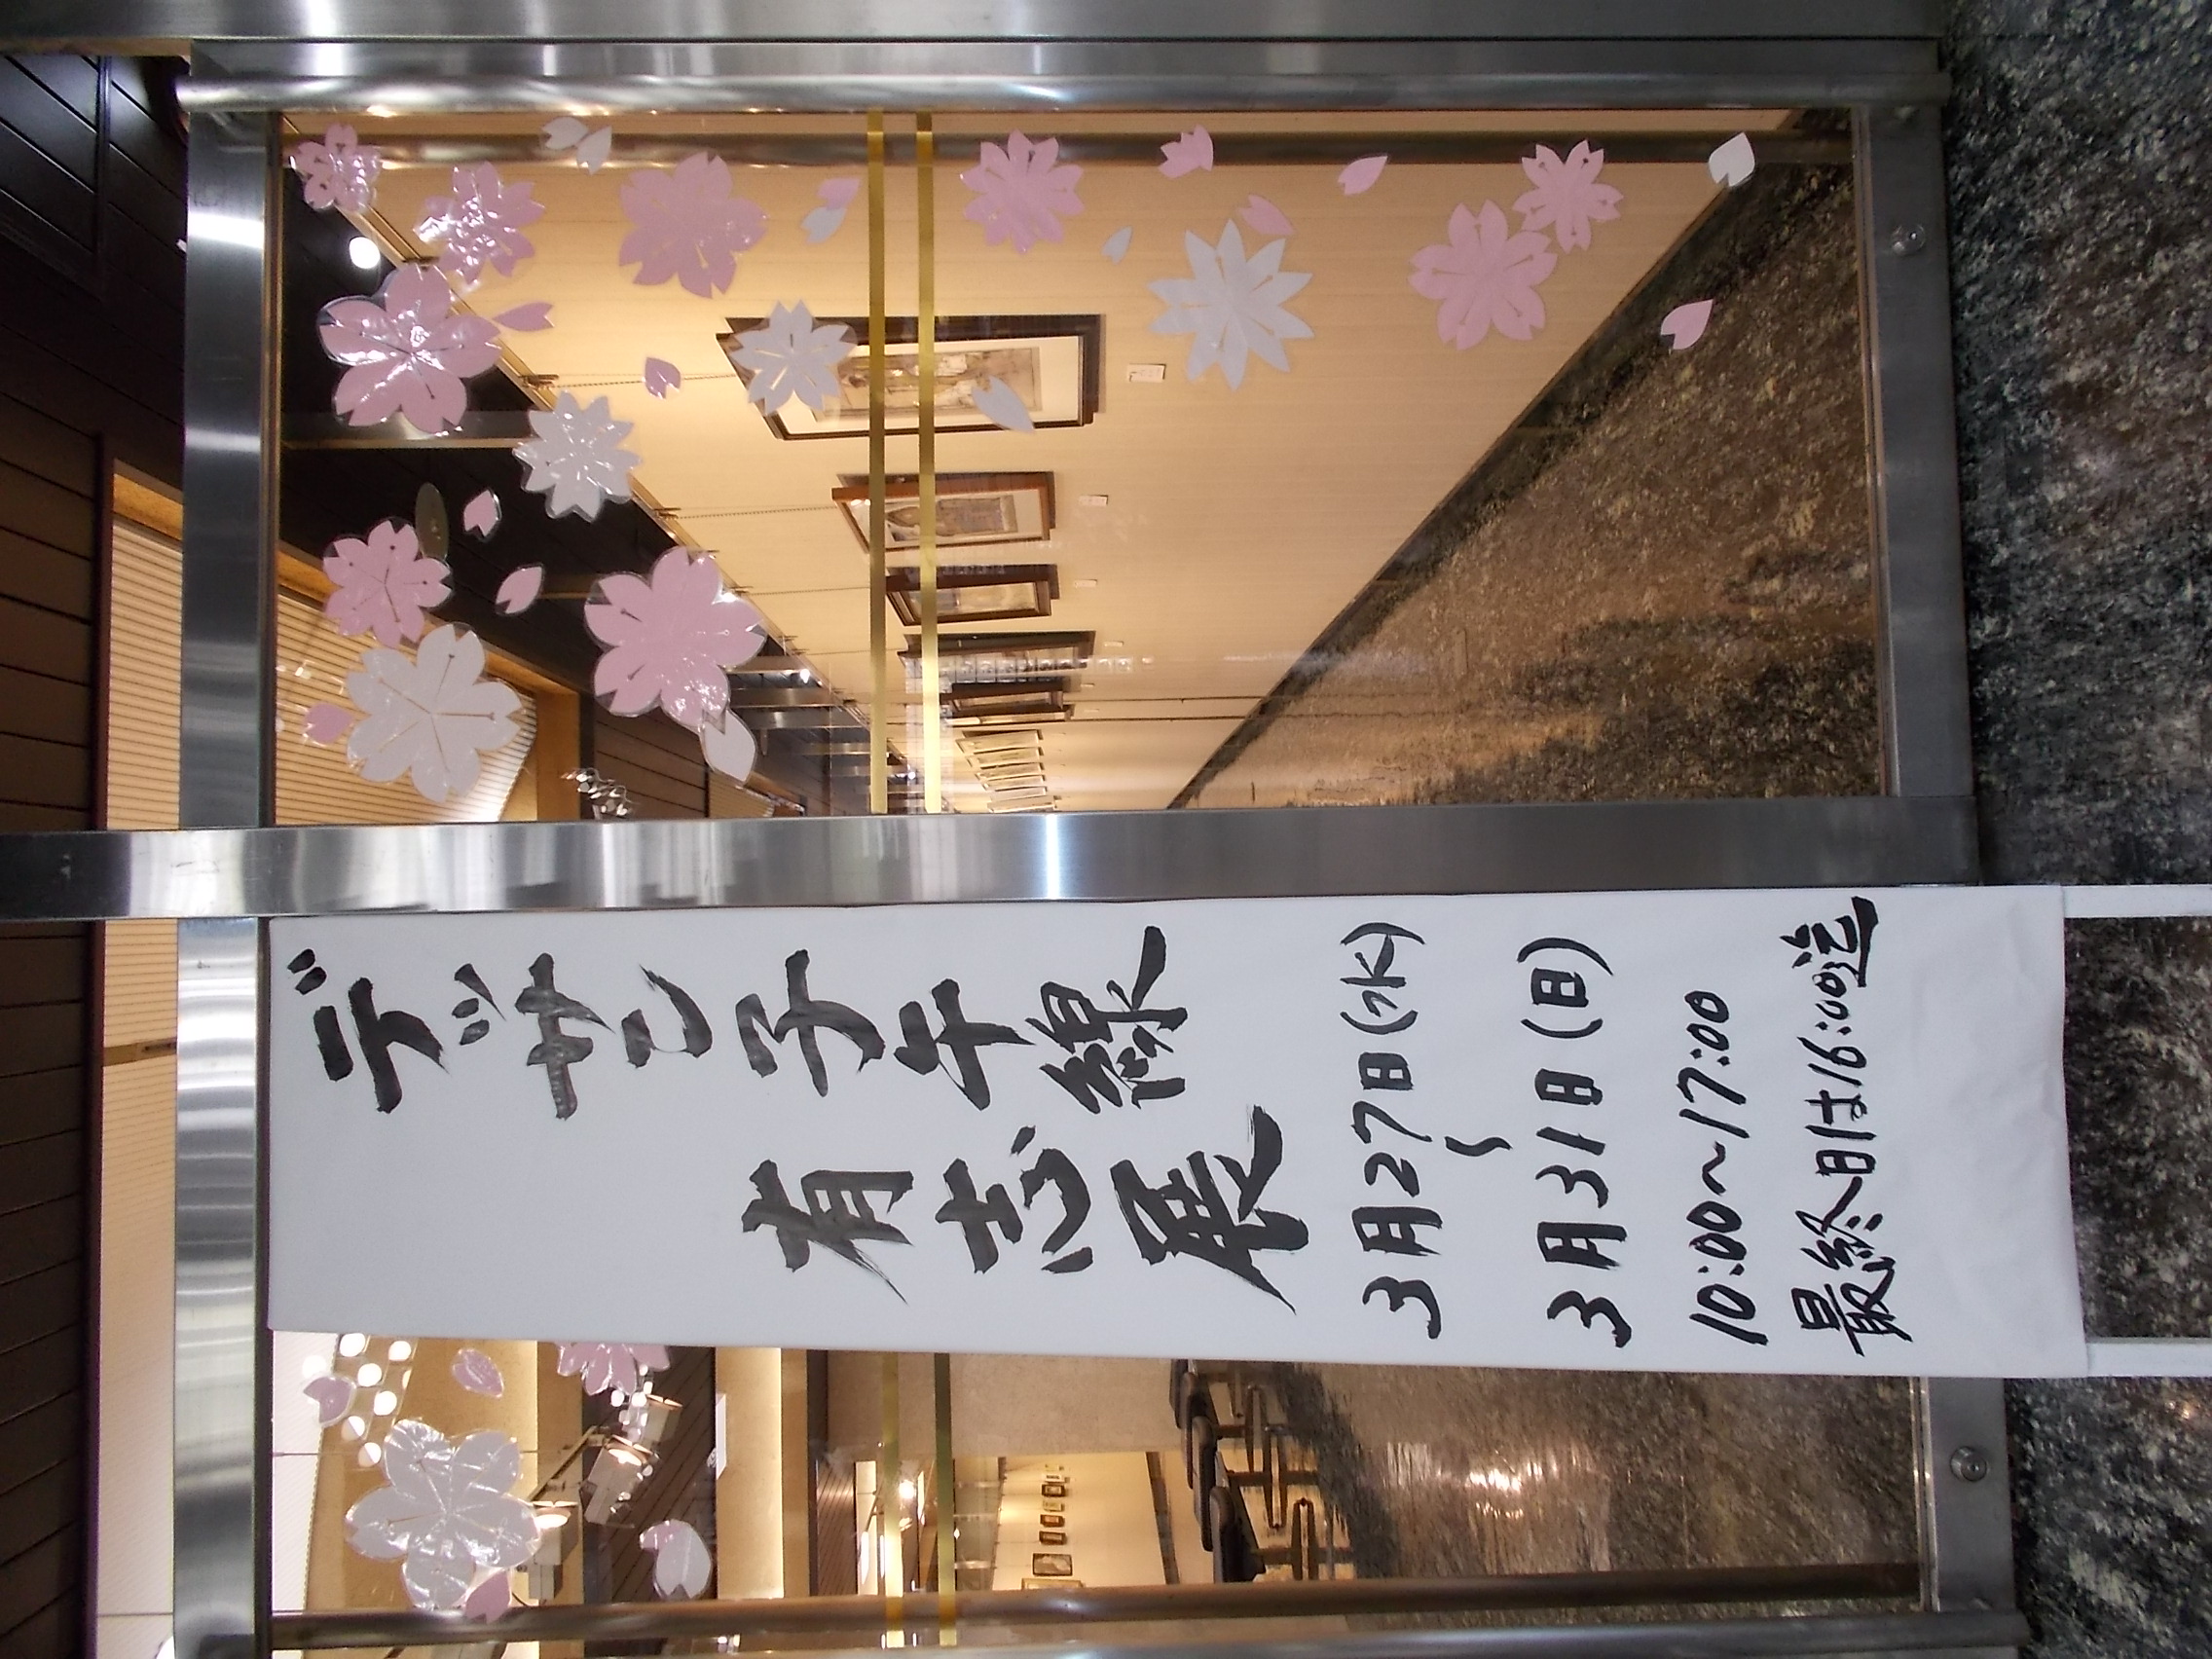 デッサン子午線
有志展
3月27日(水)
〜
3月31日(日)
10:00〜17:00
最終日は16:00迄